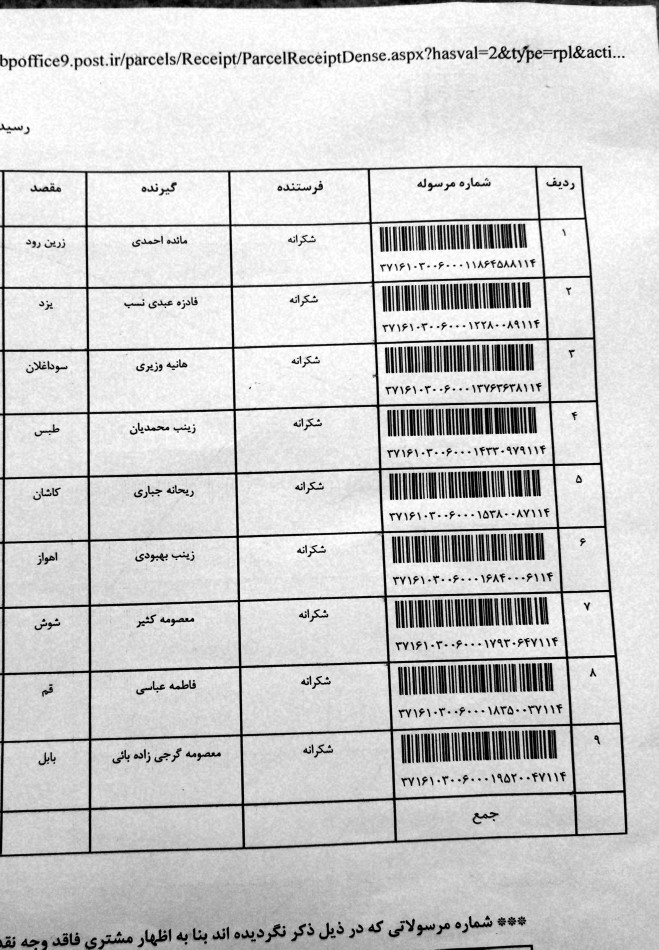 bpoffice9.post.ir/parcels/Receipt/ParcelReceiptDense.aspx?hasval=2&type=rpl&acti...
رسید
ردیف شماره مرسوله فرستنده گیرنده مقصد
۱ شکرانه مائده احمدی زرین رود
۳۷۱۶۱۰۳۰۰۶۰۰۰۱۱۸۶۴۵۸۸۱۱۴
۲ شکرانه فادزه عبدی نسب یزد
۳۷۱۶۱۰۳۰۰۶۰۰۰۱۲۲۸۰۰۸۹۱۱۴
۳ شکرانه هانیه وزیری سوداغلان
۳۷۱۶۱۰۳۰۰۶۰۰۰۱۳۷۶۳۶۳۸۱۱۴
۴ شکرانه زینب محمدیان طبس
۳۷۱۶۱۰۳۰۰۶۰۰۰۱۴۳۳۰۹۷۹۱۱۴
۵ شکرانه ریحانه جباری کاشان
۳۷۱۶۱۰۳۰۰۶۰۰۰۱۵۳۸۰۰۸۷۱۱۴
۶ شکرانه زینب بهبودی اهواز
۳۷۱۶۱۰۳۰۰۶۰۰۰۱۶۸۴۰۰۰۶۱۱۴
۷ شکرانه معصومه کثیر شوش
۳۷۱۶۱۰۳۰۰۶۰۰۰۱۷۹۳۰۶۴۷۱۱۴
۸ شکرانه فاطمه عباسی قم
۳۷۱۶۱۰۳۰۰۶۰۰۰۱۸۳۵۰۰۳۷۱۱۴
۹ شکرانه معصومه گرجی زاده بائی بابل
۳۷۱۶۱۰۳۰۰۶۰۰۰۱۹۵۲۰۰۴۷۱۱۴
جمع
*** شماره مرسولاتی که در ذیل ذکر نگردیده اند بنا به اظهار مشتری فاقد وجه نقد